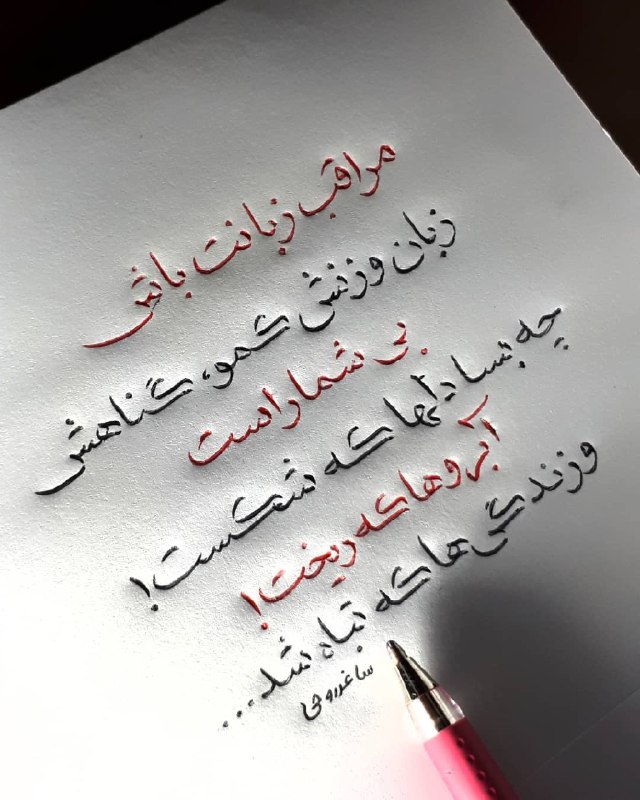 مراقب زبانت باش
زبان وزنش کمو، گناهش
بی شمار است
چه بسا دلها که شکست!
آبروها که ریخت!
و زندگی ها که تباه شد...
ساغر روحی